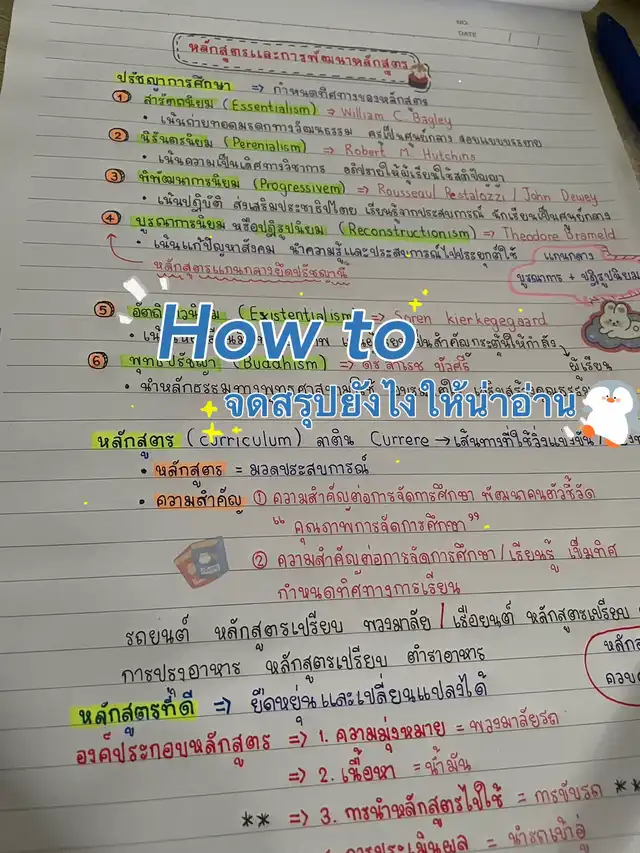 NO.
DATE
หลักสูตรและการพัฒนาหลักสูตร
ปรัชญาการศึกษา => กำหนดทิศทางของหลักสูตร
① สารัตถนิยม (Essentialism) => William C. Bagley
• เน้นถ่ายทอดมรดกทางวัฒนธรรม ครูเป็นศูนย์กลาง สอนแบบบรรยาย
② นิรันตรนิยม (Perenialism) => Robert M. Hutchins
• เน้นความเป็นเลิศทางวิชาการ อภิปรายให้ผู้เรียนใช้สติปัญญา
③ พิพัฒนาการนิยม (Progressivem) => Rousseaul Pestalozzi / John Dewey
• เน้นปฏิบัติ ส่งเสริมประชาธิปไตย เรียนรู้จากประสบการณ์ นักเรียนเป็นศูนย์กลาง
④ บูรณาการนิยม หรือปฏิรูปนิยม (Reconstructionism) => Theodore Brameld
• เน้นแก้ปัญหาสังคม นำความรู้และประสบการณ์ไปประยุกต์ใช้
แกนกลาง
หลักสูตรแกนกลางยึดปรัชญานี้
บูรณาการ + ปฏิรูปนิยม
⑤ อัตถิภาวนิยม (Existentialism) => Soren kierkegegaard
How to
⑥ พุทธปรัชญา (Buddhism) =>
ผู้เรียน
• นำหลักธรรมทางพุทธศาสนา
จดสรุปยังไงให้น่าอ่าน
หลักสูตร (Curriculum) ลติน Currere → เส้นทางที่ใช้วิ่งแข่งขัน
• หลักสูตร = มวลประสบการณ์
• ความสำคัญ ① ความสำคัญต่อการจัดการศึกษา พัฒนาคนตัวชี้วัด
" คุณภาพการจัดการศึกษา"
② ความสำคัญต่อการจัดการศึกษา/เรียนรู้ เข็มทิศ
กำหนดทิศทางการเรียน
รถยนต์ หลักสูตรเปรียบ พวงมาลัย / เรือยนต์ หลักสูตรเปรียบ
การปรุงอาหาร หลักสูตรเปรียบ ตำราอาหาร
หลักสูตรที่ดี => ยืดหยุ่นและเปลี่ยนแปลงได้
องค์ประกอบหลักสูตร => 1. ความมุ่งหมาย = พวงมาลัยรถ
=> 2. เนื้อหา = น้ำมัน
** => 3. การนำหลักสูตรไปใช้ = การขับรถ **
การประเมินผล = นำรถเข้าอู่